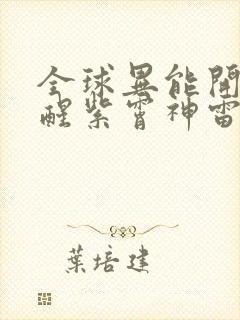 全球異能開
醒紫霄神雷
葉培建